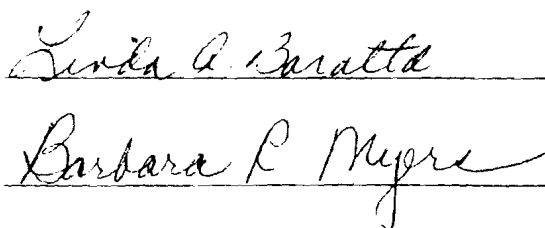 Linda A. Baratta
Barbara R Myers